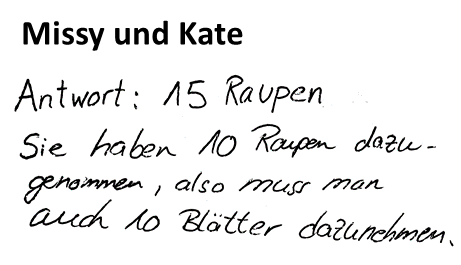 Missy und Kate
Antwort: 15 Raupen
Sie haben 10 Raupen dazu-
genommen, also muss man
auch 10 Blätter dazunehmen.